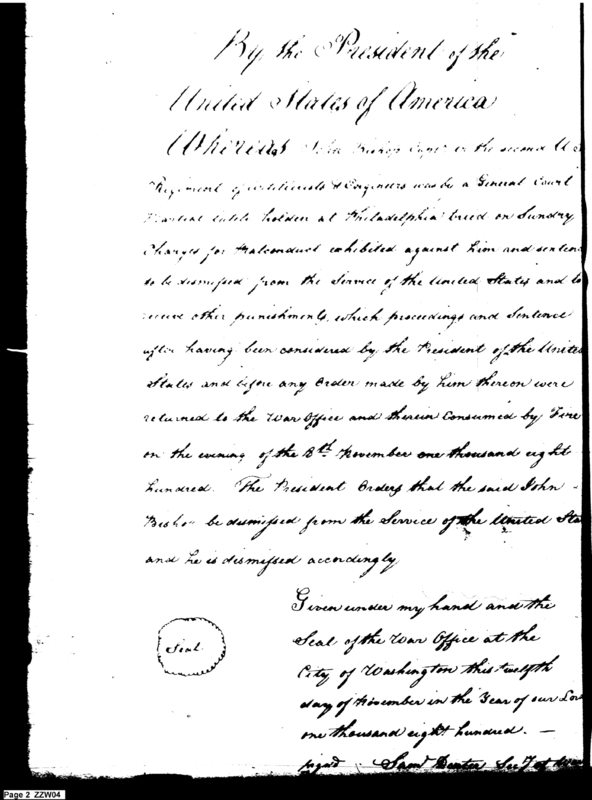 By the President of the
United States of America
Whereas John Bishop Capt in the second U S
Regiment of Artillerists & Engineers was by a General Court
Martial lately holden at Philadelphia tried on Sundry
Charges for Malconduct exhibited against him and senten
to be dismissed from the Service of the United States and to
receive other punishments, which proceedings and Sentence
after having been considered by the President of the United
States and before any Order made by him thereon were
returned to the War Office and therein Consumed by Fire
on the evening of the 8th November one thousand eight
hundred. The President Orders that the said John
Bishop be dismissed from the Service of the United Sta
and he is dismissed accordingly
Given under my hand and the
Seal of the War Office at the
City of Washington this twelfth
day of November in the Year of our Lord
one thousand eight hundred. —
Seal
signd Saml Dexter Secy of War
Page 2 ZZW04